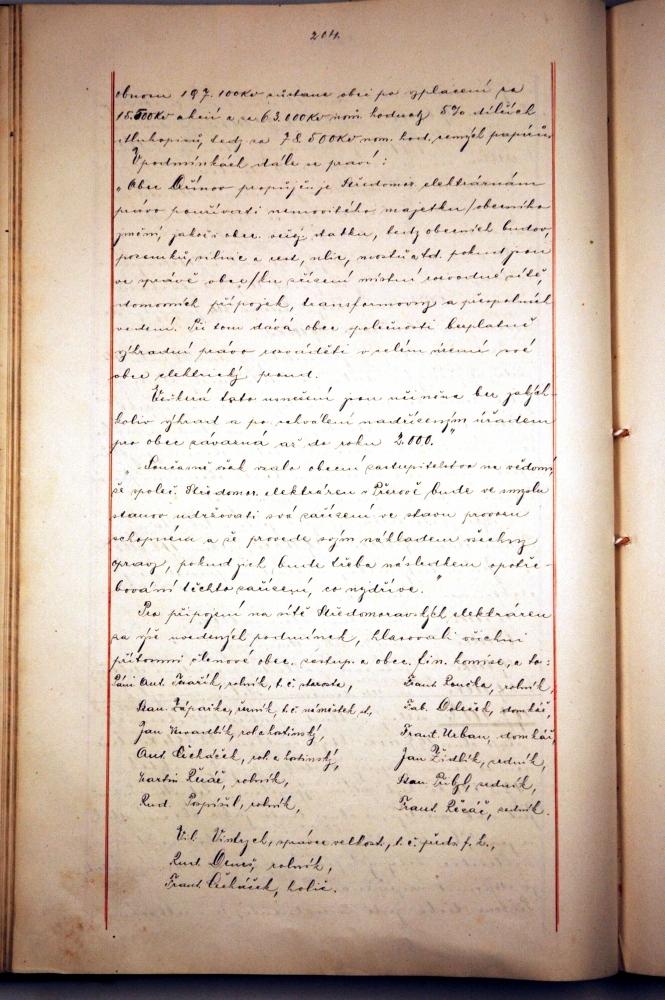 204.
obnosu 197.100Kč zůstane obci po vyplacení za
15.500Kč akcií a za 63.000Kč nom. hodnoty 5% dílčích
dluhopisů, tedy za 78.500Kč nom. hod. cenných papírů.
V podmínkách dále se praví:
„Obec Dřínov propůjčuje Středomor. elektrárnám
právo používati nemovitého majetku /obecního
jmění, jakož i obec. statku, tedy obecních budov,
pozemků, silnic a cest, ulic, mostů atd. pokud jsou
ve správě obce/ ku zřízení místní rozvodné sítě,
domovních přípojek, transformoven a přespolních
vedení. Při tom dává obec společnosti bezplatně
výhradní právo rozváděti v celém území své
obce elektrický proud.
Veškerá tato usnesení jsou učiněna bez jakých-
koliv výhrad a po schválení nadřízeným úřadem
pro obec závazna až do roku 2.000."
„Současně však vzalo obecní zastupitelstvo na vědomí,
že společ. Středomor. elektráren v Přerově bude ve smyslu
stanov udržovati svá zařízení ve stavu provozu
schopném a že provede svým nákladem všechny
opravy, pokud jich bude třeba následkem opotře-
bování těchto zařízení, co nejdříve."
Pro připojení na sítě Středomoravských elektráren
za výše uvedených podmínek, hlasovali všichni
přítomní členové obec. zastup. a obec. fin. komise, a to:
Páni Ant. rolník, t. č. starosta,
Frant. rolník,
Stan. Zápařka, řezník, t. č. náměstek st.
Fab. Doleček, domkář,
Jan rol. a hostinský,
Frant. Urban, domkář,
Ant. Čecháček, rol. a hostinský,
Jan Židlík, rolník,
Martin Řeháč, rolník,
Stan. rolník,
Rud. Pospíšil, rolník,
Frant. rolník.
Vil. Vintrych, správce velkost., t. č. předs. f. k.,
Rud. Beneš, rolník,
Frant. Čecháček, holič.